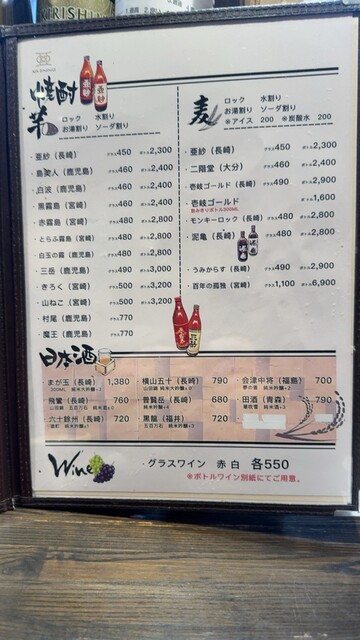 KIRISHI
焼酎
芋
ロック 水割り
お湯割り ソーダ割り
・亜紗(長崎) グラス450 ボトル2,300
・島美人(鹿児島) グラス460 ボトル2,400
・白波(鹿児島) グラス460 ボトル2,400
・黒霧島(宮崎) グラス460 ボトル2,400
・赤霧島(宮崎) グラス480 ボトル2,800
・とらふ霧島(宮崎) グラス480 ボトル2,800
・白玉の露(鹿児島) グラス480 ボトル2,800
・三岳(鹿児島) グラス490 ボトル3,000
・きろく(宮崎) グラス500 ボトル3,200
・山ねこ(宮崎) グラス500 ボトル3,200
・村尾(鹿児島) グラス770
・魔王(鹿児島) グラス770
麦
ロック 水割り
お湯割り ソーダ割り
※アイス 200 ※炭酸水 200
・亜紗(長崎) グラス450 ボトル2,300
・二階堂(大分) グラス460 ボトル2,400
・壱岐ゴールド(長崎) グラス490 ボトル2,900
・壱岐ゴールド ボトル1,600
飲みきりボトル300ML
・モンキーロック(長崎) グラス480 ボトル2,800
・泥亀(長崎) グラス480 ボトル2,800
・うみからす(長崎) グラス490 ボトル2,900
・百年の孤独(宮崎) グラス1,100 ボトル6,900
日本酒
まが玉(長崎) 1,380
300ML 純米大吟醸
横山五十(長崎) 790
山田錦 純米大吟醸
会津中将(福島) 700
夢の香 純米吟醸
飛鸞(長崎) 760
山田錦 五百万石 純米酒
普賢岳(長崎) 680
純米吟醸
田酒(青森) 790
華吹雪 純米酒
六十餘州(長崎) 720
純米吟醸
黒龍(福井) 720
五百万石 純米吟醸
Wine
・グラスワイン 赤 白 各550
※ボトルワイン別紙にてご用意。